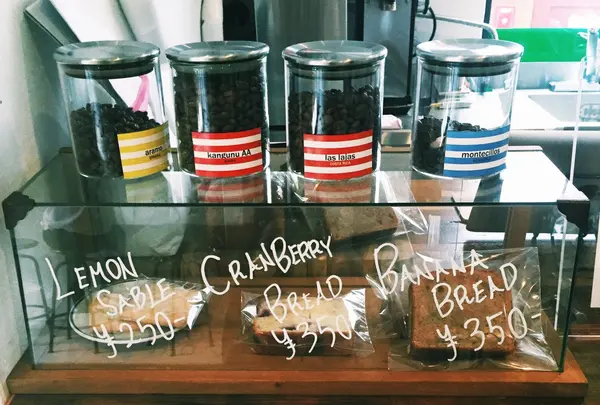 aramo
kangunu AA
las lajas
montecillos
LEMON
SABLE
¥250
CRANBERRY
BREAD
¥350
BANANA
BREAD
¥350-